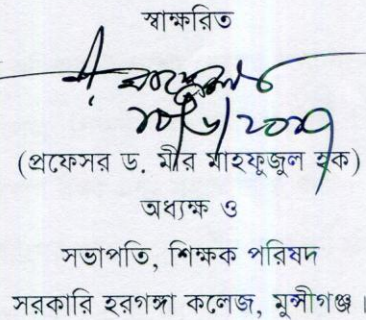 স্বাক্ষরিত
(প্রফেসর ড. মীর মাহফুজুল হক)
অধ্যক্ষ ও
সভাপতি, শিক্ষক পরিষদ
সরকারি হরগঙ্গা কলেজ, মুন্সীগঞ্জ।